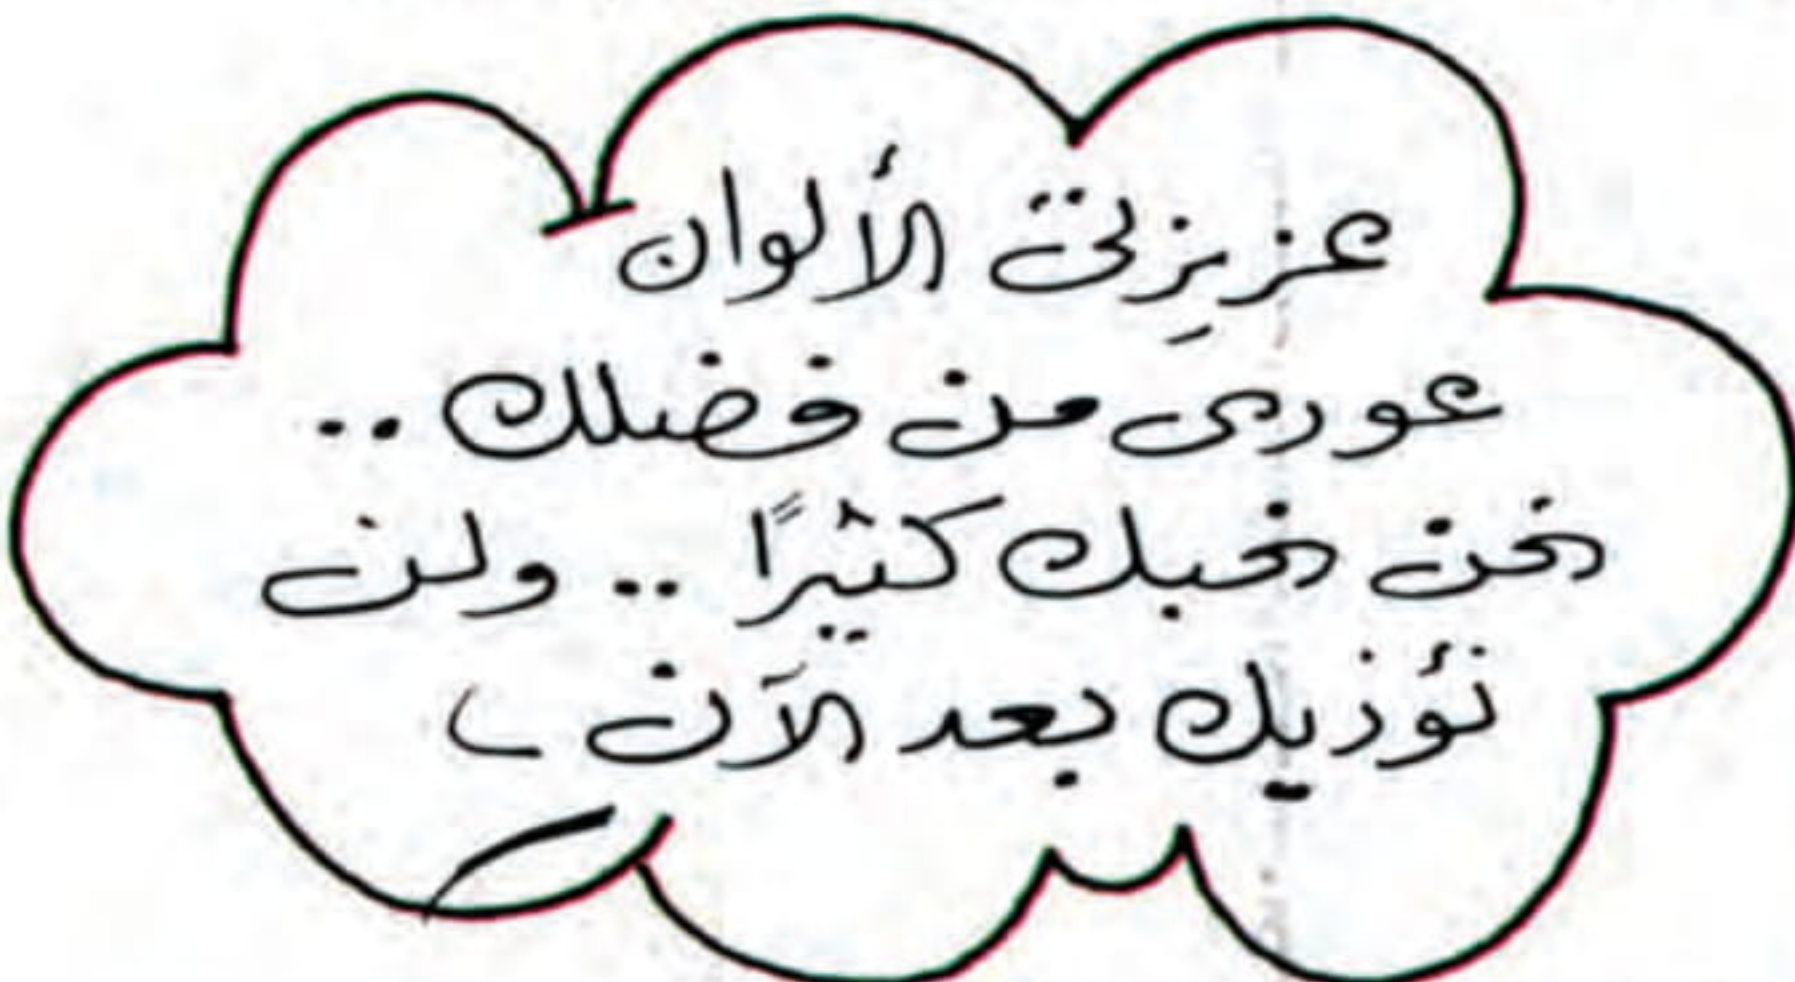 عزيزتى الألوان
عودى من فضلك ..
نحن نحبك كثيرًا .. ولن
نؤذيك بعد الآن )